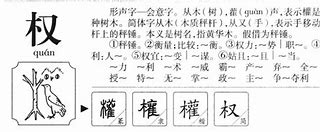 权
quán
形声字—会意字。从木(树),雚(guàn)声,表示權是一
种树木。简体字从木(木质秤杆),从又(手),表示手移动
杆上的秤锤。本义是树名,指黄华木。假借为秤锤。
①秤锤。②衡量;比较:~衡。③权力:~势│职~。④
利:人~。⑤权宜:~变│~谋。⑥姑且:~且│~当。
~力 ~利 ~术 ~威 霸~ 产~ 弃~ 全~
授~ 特~ 无~ 掌~ 政~ 主~ 争~ 夺利
權 權 權 权
篆 隶 楷 简